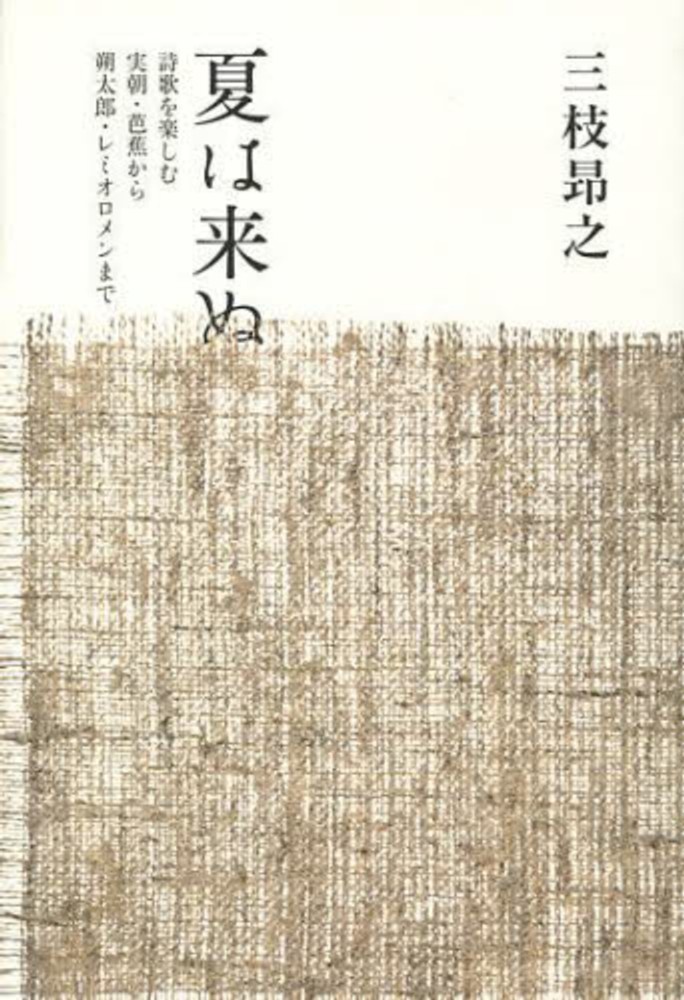 三枝昻之
夏は来ぬ
詩歌を楽しむ
実朝・芭蕉から
朔太郎・レミオロメンまで